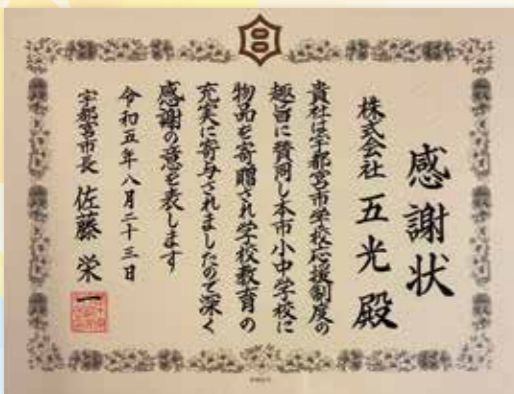 感謝状
株式会社 五光 殿
貴社は宇都宮市学校応援制度の
趣旨に賛同し本市小中学校に
物品を寄贈され学校教育の
充実に寄与されましたので深く
感謝の意を表します
令和五年八月二十三日
宇都宮市長 佐藤栄一